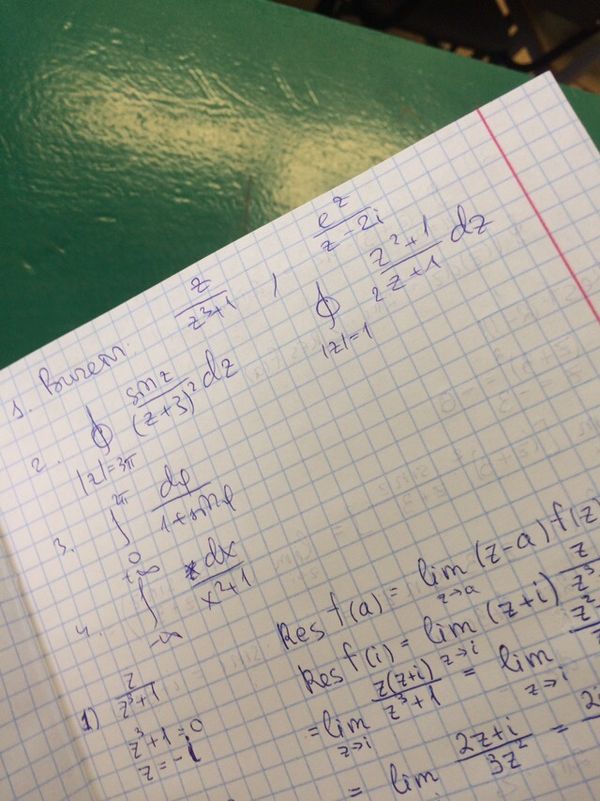 1. Вычет: z/(z³+1) , e^z/(z-2i)
2. ∮_{|z|=3π} sin z/(z+3)² dz ∮_{|z|=1} (z²+1)/(2z+1) dz
3. ∫_0^{2π} dφ/(1+sin φ)
4. ∫_{-∞}^{+∞} dx/(x²+1)
1) z/(z³+1)
z³+1=0
z=-i
Res f(a) = lim_{z→a} (z-a) f(z)
Res f(i) = lim_{z→i} (z+i) z/z³
= lim_{z→i} z(z+i)/(z³+1) = lim_{z→i} z²
= lim (2z+i)/(3z²) =